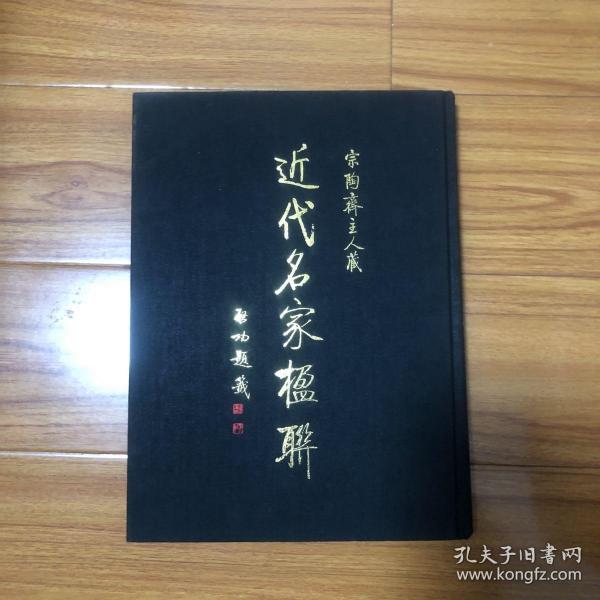 宗陶齋主人藏
近代名家楹聯
啓功題籤
孔夫子旧书网
www.kongfz.com